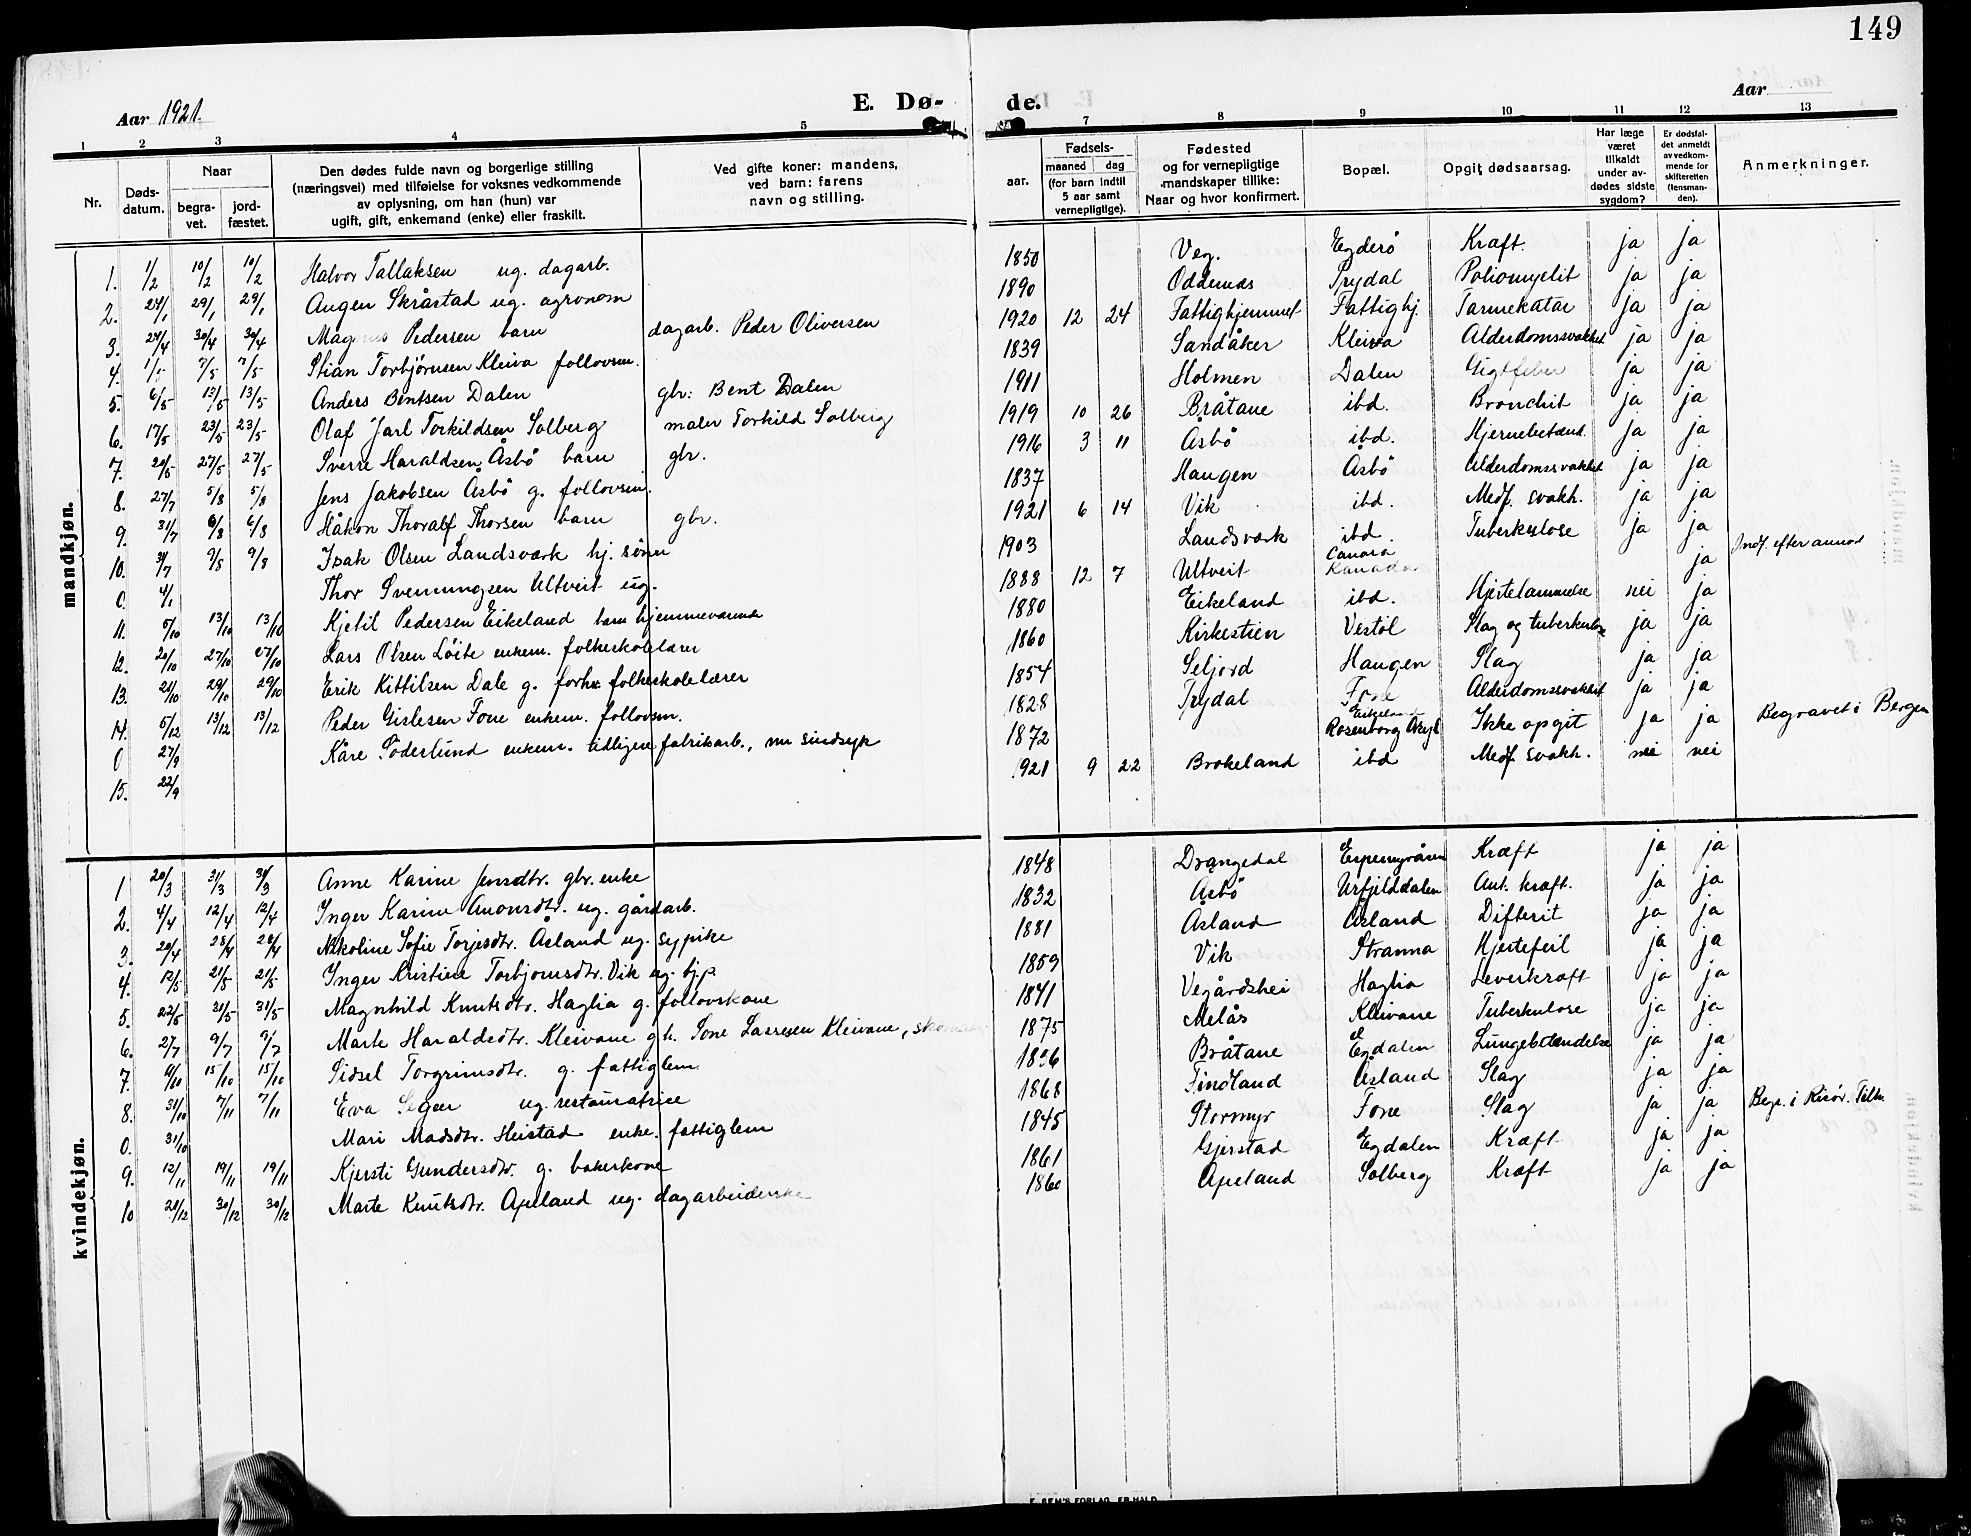 149
Aar 1921. E. Dø- de. Aar
1 2 3 4 5 7 8 9 10 11 12 13
Nr. Døds-datum. Naar begra-vet. jord-fæstet. Den dødes fulde navn og borgerlige stilling (næringsvei) med tilføielse for voksnes vedkommende av oplysning, om han (hun) var ugift, gift, enkemand (enke) eller fraskilt. Ved gifte koner: mandens, ved barn: farens navn og stilling. Fødsels- aar. maaned dag (for barn indtil 5 aar samt vernepligtige). Fødested og for vernepligtige mandskaper tillike: Naar og hvor konfirmert. Bopæl. Opgit dødsaarsag. Har læge været tilkaldt under av-dødes sidste sygdom? Er dødsfal-det anmeldt av vedkom-mende for skifteretten (lensman-den). Anmerkninger.
mandkjøn.
1. 1/2 10/2 10/2 Halvor Tallaksen ug. dagarb. 1850 Veg. Egderø Kræft. ja ja
2. 24/1 29/1 29/1 Augen Skråstad ug. agronom 1890 Oddernes Trydal Poliomyelit ja ja
3. 24/4 30/4 30/4 Magnus Pedersen barn dagarb. Peder Oliversen 1920 12 24 Fattighjemmet Fattighj. Tarmekatar ja ja
4. 1/5 7/5 7/5 Stian Torbjørnsen Kleiva follovsm. 1839 Sandåker Kleiva Alderdomssvakhet ja ja
5. 6/5 13/5 13/5 Anders Bentsen Dalen gbr: Bent Dalen 1911 Holmen Dalen Gigtfeber ja ja
6. 17/5 23/5 23/5 Olaf Jarl Torkildsen Solberg maler Torkild Solberg 1919 10 26 Bråtane ibd. Bronchit ja ja
7. 20/5 27/5 27/5 Sverre Haraldsen Åsbö barn gbr. 1916 3 11 Åsbö ibd. Hjernebetænd. ja ja
8. 27/7 5/8 5/8 Jens Jakobsen Åsbö g. follovsm. 1837 Haugen Åsbö Alderdomssvakhet ja ja
9. 31/7 6/8 6/8 Håkon Thoralf Thorsen barn gbr. 1921 6 14 Vik ibd. Medf. svakh. ja ja
10. 31/7 9/8 9/8 Isak Olsen Landsværk hj. sønn 1903 Landsværk ibd. Tuberkulose ja ja
0. 4/1 Thor Svenningsen Ultveit ug. 1888 12 7 Ultveit Canara Kanada ja Indf. efter annod
11. 5/10 13/10 13/10 Kjetil Pedersen Eikeland barn hjemmeværende 1880 Eikeland ibd. Hjertelammelse nei ja
12. 20/10 27/10 27/10 Lars Olsen Löite enkem. folkeskolelærer 1860 Kirkestien Vestøl Slag og tuberkulose ja ja
13. 21/10 29/10 29/10 Erik Kittilsen Dale g. forhv. folkeskolelærer 1854 Seljord Haugen Slag ja ja
14. 5/12 13/12 13/12 Peder Gislesen Fone enkem. follovsm. 1828 Trydal Fone Alderdomssvakhet ja ja
0 27/9 Kåre Söderlund enkem. tidligere fabrikarb., nu sindsyk 1872 Eikeland Rosenborg Asyl Ikke opgit ja ja Begravet i Bergen
15. 22/9 1921 9 22 Brokeland ibd Medf. svakh. nei nei
kvindekjøn.
1 20/3 31/3 31/3 Anne Karine Jensdtr. gbr. enke 1848 Drangedal Espemyråsen Kræft ja ja
2. 4/4 12/4 12/4 Inger Karine Anonsdtr. ug. gårdarb. 1832 Åsbö Urfjelddalen Ant. kræft. ja ja
3. 20/4 28/4 28/4 Nikoline Sofie Torjesdtr. Åsland ug. sypike 1881 Åsland Åsland Difterit ja ja
4. 12/5 21/5 21/5 Inger Kristine Torbjornsdtr. Vik ug. tjp 1859 Vik Stranna Hjertefeil ja ja
5. 22/5 31/5 31/5 Magnhild Knutsdtr. Haglia g. follovskone 1841 Vegårdshei Haglia Leverkræft ja ja
6. 27/7 9/7 9/7 Marte Haraldsdtr. Kleivane g. h. Sone Larresen Kleivane, 1875 Melås Kleivane Tuberkulose ja ja
7. 9/10 15/10 15/10 Sidsel Torgrimsdtr. g. fattiglem 1836 Bråtane Egdalen Lungebetændelse ja ja
8. 31/10 7/11 7/11 Eva Seger ug. restauratrice 1868 Findland Åsland Slag ja ja
0. 31/10 Mari Madsdtr. Heistad enke. fattiglem 1845 Stormyr Fone Slag ja ja Begr. i Risør.
9. 12/11 19/11 19/11 Kjersti Gundersdtr. g. bakerkone 1861 Gjerstad Egdalen Kræft ja ja
10 20/12 30/12 30/12 Marte Knutsdtr. Apeland ug. dagarbeiderske 1860 Apeland Solberg Kræft ja ja